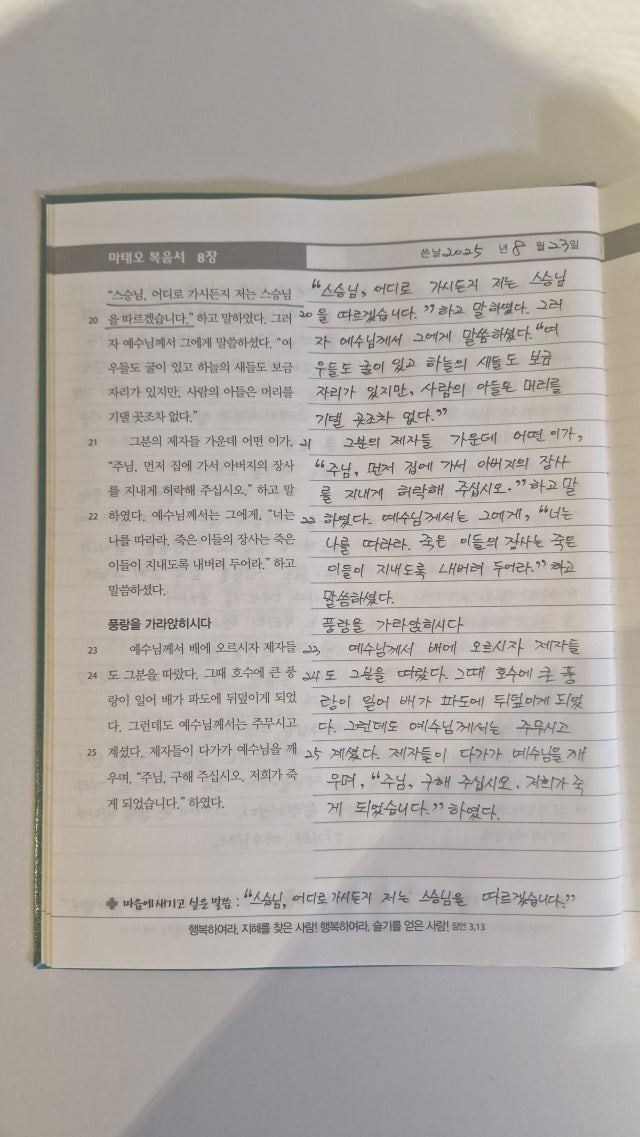 마태오 복음서 8장
쓴날 2025 년 8 월 23일
“스승님, 어디로 가시든지 저는 스승님
20 을 따르겠습니다.” 하고 말하였다. 그러
자 예수님께서 그에게 말씀하셨다. “여
우들도 굴이 있고 하늘의 새들도 보금
자리가 있지만, 사람의 아들은 머리를
기댈 곳조차 없다.”
21 그분의 제자들 가운데 어떤 이가,
“주님, 먼저 집에 가서 아버지의 장사
를 지내게 허락해 주십시오.” 하고 말
22 하였다. 예수님께서는 그에게, “너는
나를 따라라. 죽은 이들의 장사는 죽은
이들이 지내도록 내버려 두어라.” 하고
말씀하셨다.
풍랑을 가라앉히시다
23 예수님께서 배에 오르시자 제자들
24 도 그분을 따랐다. 그때 호수에 큰 풍
랑이 일어 배가 파도에 뒤덮이게 되었
다. 그런데도 예수님께서는 주무시고
25 계셨다. 제자들이 다가가 예수님을 깨
우며, “주님, 구해 주십시오. 저희가 죽
게 되었습니다.” 하였다.
“스승님, 어디로 가시든지 저는 스승님
20 을 따르겠습니다.” 하고 말하였다. 그러
자 예수님께서 그에게 말씀하셨다. “여
우들도 굴이 있고 하늘의 새들도 보금
자리가 있지만, 사람의 아들은 머리를
기댈 곳조차 없다.”
21 그분의 제자들 가운데 어떤 이가,
“주님, 먼저 집에 가서 아버지의 장사
를 지내게 허락해 주십시오.” 하고 말
22 하였다. 예수님께서는 그에게, “너는
나를 따라라. 죽은 이들의 장사는 죽은
이들이 지내도록 내버려 두어라.” 하고
말씀하셨다.
풍랑을 가라앉히시다
23 예수님께서 배에 오르시자 제자들
24 도 그분을 따랐다. 그때 호수에 큰 풍
랑이 일어 배가 파도에 뒤덮이게 되었
다. 그런데도 예수님께서는 주무시고
25 계셨다. 제자들이 다가가 예수님을 깨
우며, “주님, 구해 주십시오. 저희가 죽
게 되었습니다.” 하였다.
✚ 마음에 새기고 싶은 말씀 : “스승님, 어디로 가시든지 저는 스승님을 따르겠습니다.”
행복하여라, 지혜를 찾은 사람! 행복하여라, 슬기를 얻은 사람! 잠언 3,13